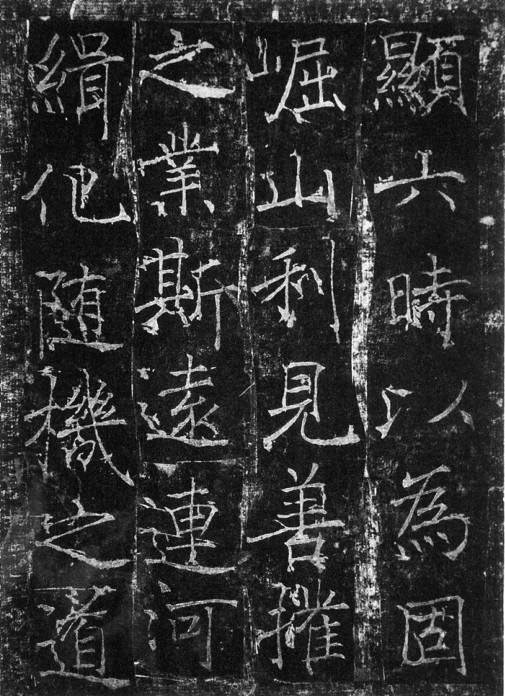 顯六時以為固
崛山利見善權
之業斯遠連河
緝化随機之道